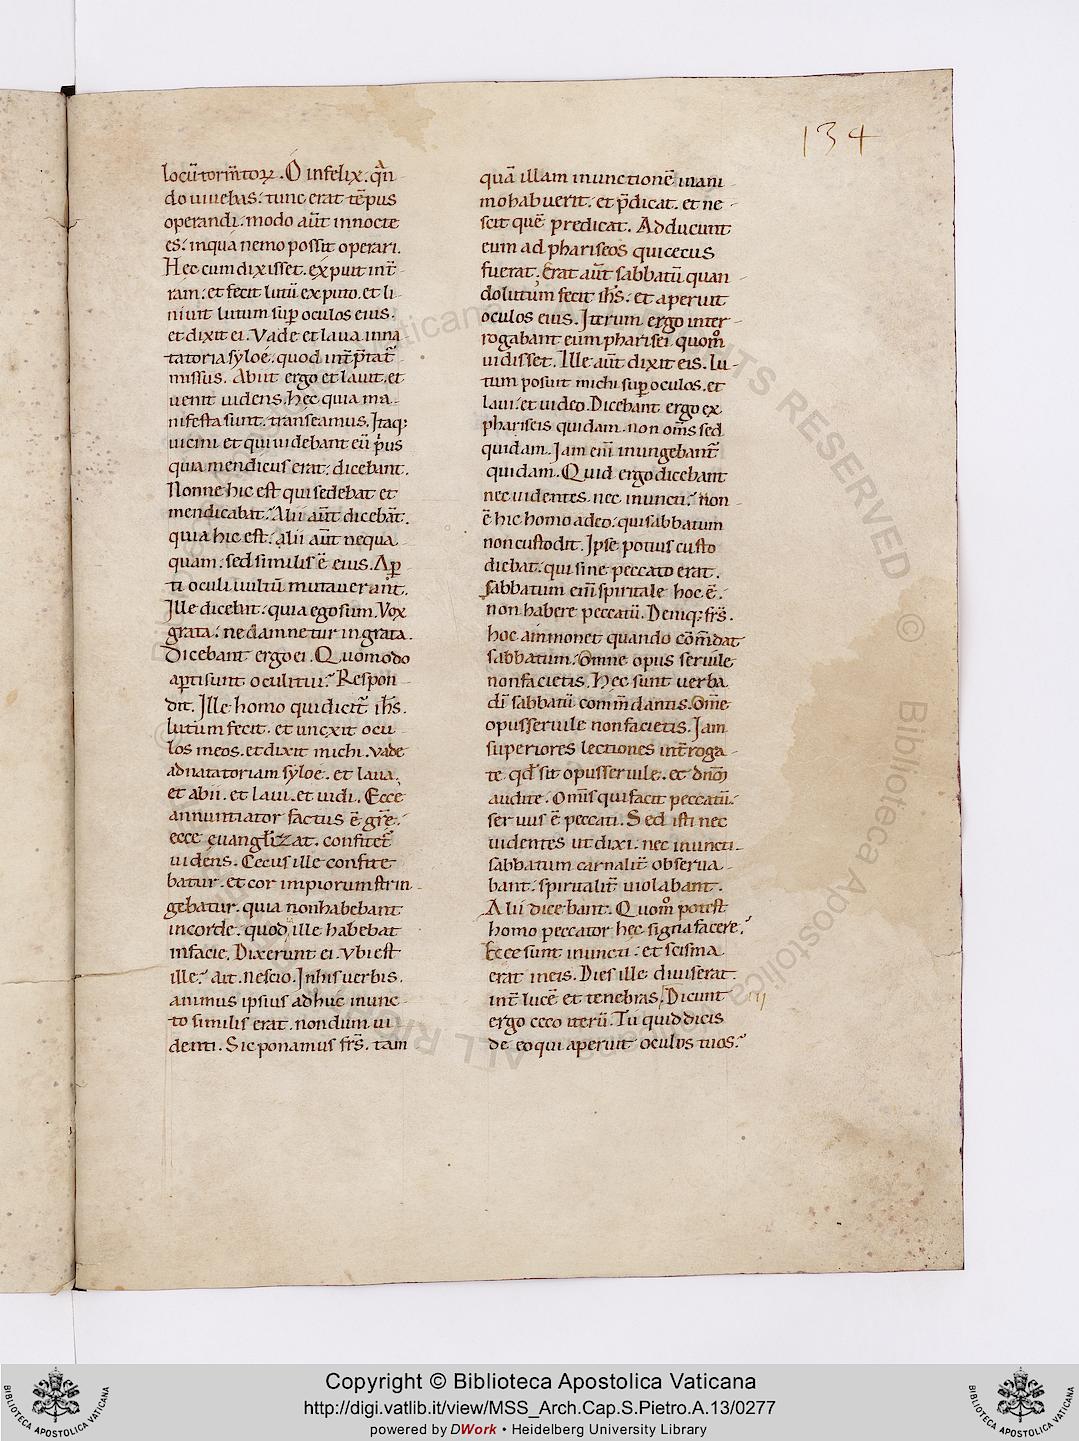 134
locū tormtoꝝ. O infelix. qn̄
do uiuebas: tunc erat tēpus
operandi. modo aut̄ in nocte
es: in qua nemo possit operari.
Hec cum dixisset. expuit int̄
ram: et fecit lutū ex puto. et li
niuit lutum suꝑ oculos eius.
et dixit ei. Vade et laua in na
tatoria syloe. quod int̄p̄tat̄
missus. Abiit ergo et lauit. et
uenit uidens. Hec quia ma
nifesta sunt. transeamus. Itaq:
uicini et qui uidebant eū p̍us
quia mendicus erat: dicebant.
Nonne hic est qui sedebat et
mendicabat? Alii aut̄ dicebāt.
quia hic est: alii aut̄ nequa
quam: sed similis ē eius. Aꝑ
ti oculi uultū mutauerant.
Ille dicebat: quia ego sum. Vox
grata: ne damnetur ingrata.
Dicebant ergo ei. Quomodo
aꝑti sunt oculi tui? Respon
dit. Ille homo qui dicit̄ ih̄s.
lutum fecit. et unexit ocu
los meos. et dixit michi. vade
ad natatoriam syloe. et laua.
et abii. et laui. et uidi. Ecce
annuntiator factus ē gr̄e:
ecce euangl̄izat. confitet̄
uidens. Cecus ille confite
batur. et cor impiorum strin
gebatur. quia non habebant
in corde. quod ille habebat
in facie. Dixerunt ei. Vbi est
ille? ait. Nescio. In his uerbis.
animus ipsius adhuc inunc
to similis erat. nondum ui
denti. Sic ponamus fr̄s. tam
quā illam inunctionē in ani
mo habuerit. et p̄dicat. et ne
scit quē predicat. Adducunt
eum ad phariseos qui cecus
fuerat. Erat aut̄ sabbatū quan
do lutum fecit ih̄s: et aperuit
oculos eius. Iterum ergo inter
rogabant eum pharisei quom̊
uidisset. Ille aut̄ dixit eis. Lu
tum posuit michi suꝑ oculos. et
laui: et uideo. Dicebant ergo ex
phariseis quidam. non om̄s sed
quidam. Iam eni̅ inungebant̄
quidam. Quid ergo dicebant
nec uidentes. nec inuncti? Non
ē hic homo a deo: qui sabbatum
non custodit. Ipse potius custo
diebat: qui sine peccato erat.
Sabbatum eni̅ spiritale hoc ē:
non habere peccatū. Deniq: fr̄s.
hoc ammonet quando cōm̄dat
sabbatum. Omne opus seruile
non facietis. Hec sunt uerba
di̅ sabbatū comm̄dantis. Om̄e
opus seruile non facietis. Iam
superiores lectiones int̄roga
te. qd̄ sit opus seruile. et dn̄m
audite. Om̄is qui facit peccatū:
seruus ē peccati. Sed isti nec
uidentes ut dixi. nec inuncti.
sabbatum carnalit̄ obserua
bant: spiritualit̄ uiolabant.
Alii dicebant. Quom̊ potest
homo peccator hec signa facere?
Ecce sunt inuncti: et scisma
erat in eis. Dies ille diuiserat
int̄ lucē et tenebras. Dicunt
ergo ceco iterū. Tu quid dicis
de eo qui aperuit oculos tuos?
Copyright © Biblioteca Apostolica Vaticana
http://digi.vatlib.it/view/MSS_Arch.Cap.S.Pietro.A.13/0277
powered by DWork • Heidelberg University Library